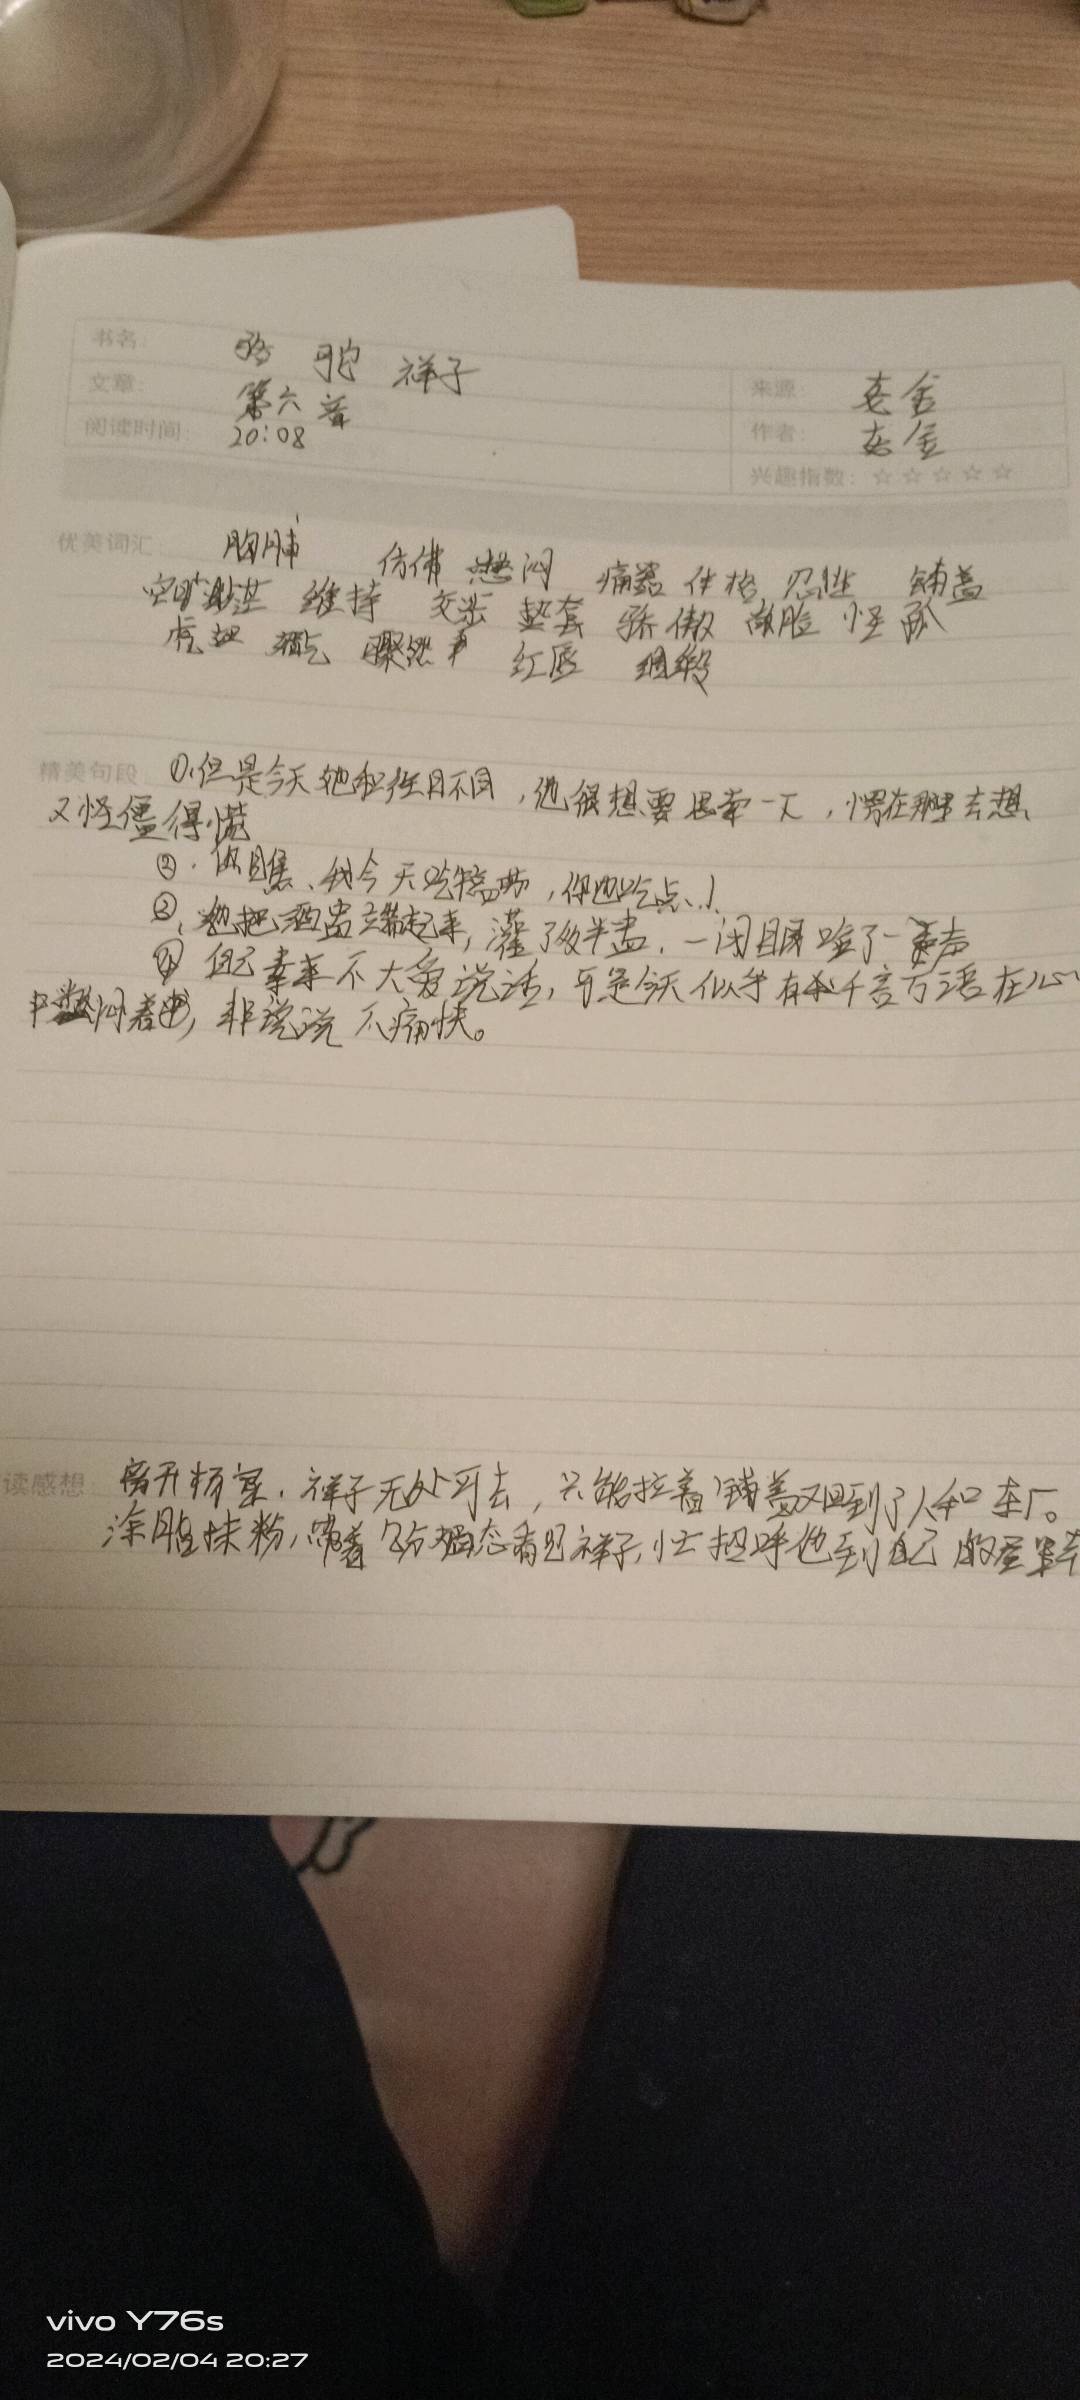 书名: 骆驼祥子
文章: 第六章
阅读时间: 20:08
来源: 老舍
作者: 老舍
兴趣指数: ☆☆☆☆☆
优美词汇: 胸脯 仿佛 愁闷 痛 体格 忍 铺盖
空旷 维持 交 垫套 骄傲 敞脸 怪
虎妞 骤然 红唇 绸缎
精美句段 ①.但是今天她和往日不同,他很想要思索一下,愣在那里去想,
又怪僵得慌
②.你瞧、我今天吃犒劳,你也吃点..!
③.她把酒盅端起来,灌了多半盅,一闭眼哈了一声
④ 自己素来不大爱说话,可是今天似乎有千言万语在心
中憋闷着,非说说不痛快。
读感想: 离开杨家,祥子无处可去,只能拉着铺盖又回到了人和车厂。
涂脂抹粉,带着几分媚态看见祥子,忙招呼他到自己的
vivo Y76s
2024/02/04 20:27